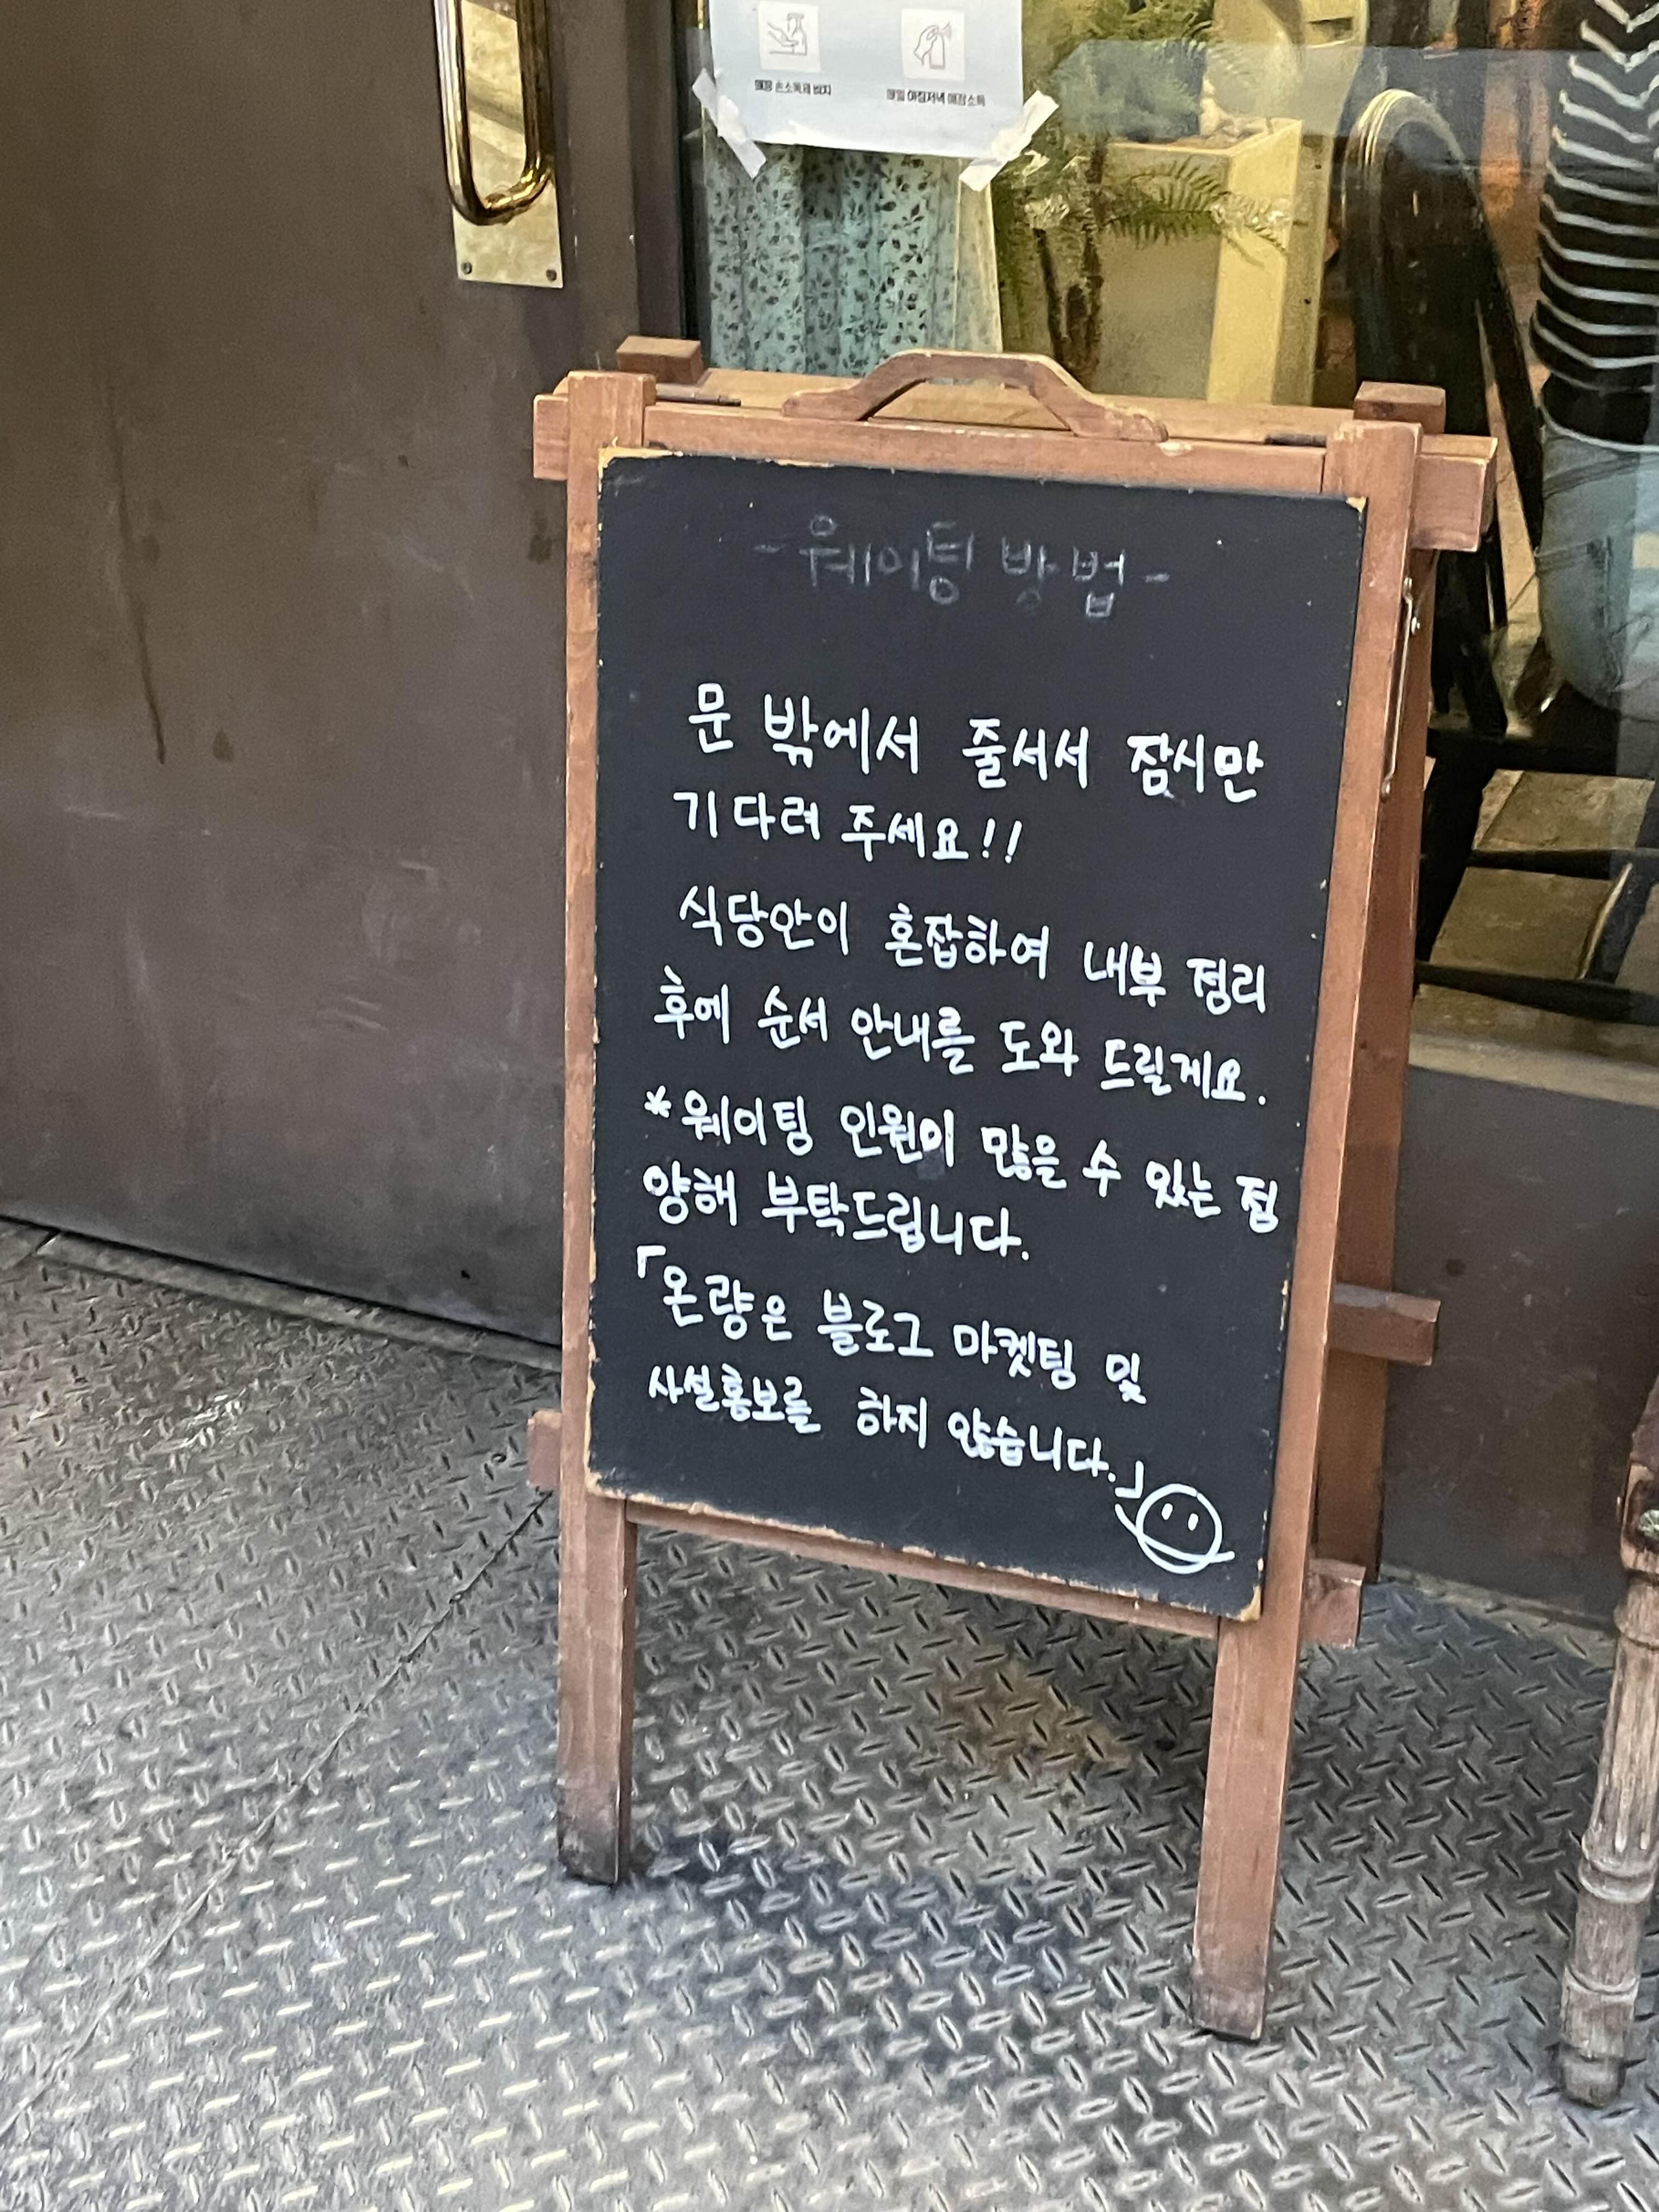 매장 손소독제 비치
매일 아침저녁 매장소독
-웨이팅 방법-
문 밖에서 줄서서 잠시만
기다려 주세요!!
식당안이 혼잡하여 내부 정리
후에 순서 안내를 도와 드릴게요.
*웨이팅 인원이 많을 수 있는 점
양해 부탁드립니다.
「온량은 블로그 마켓팅 및
사설홍보를 하지 않습니다.」